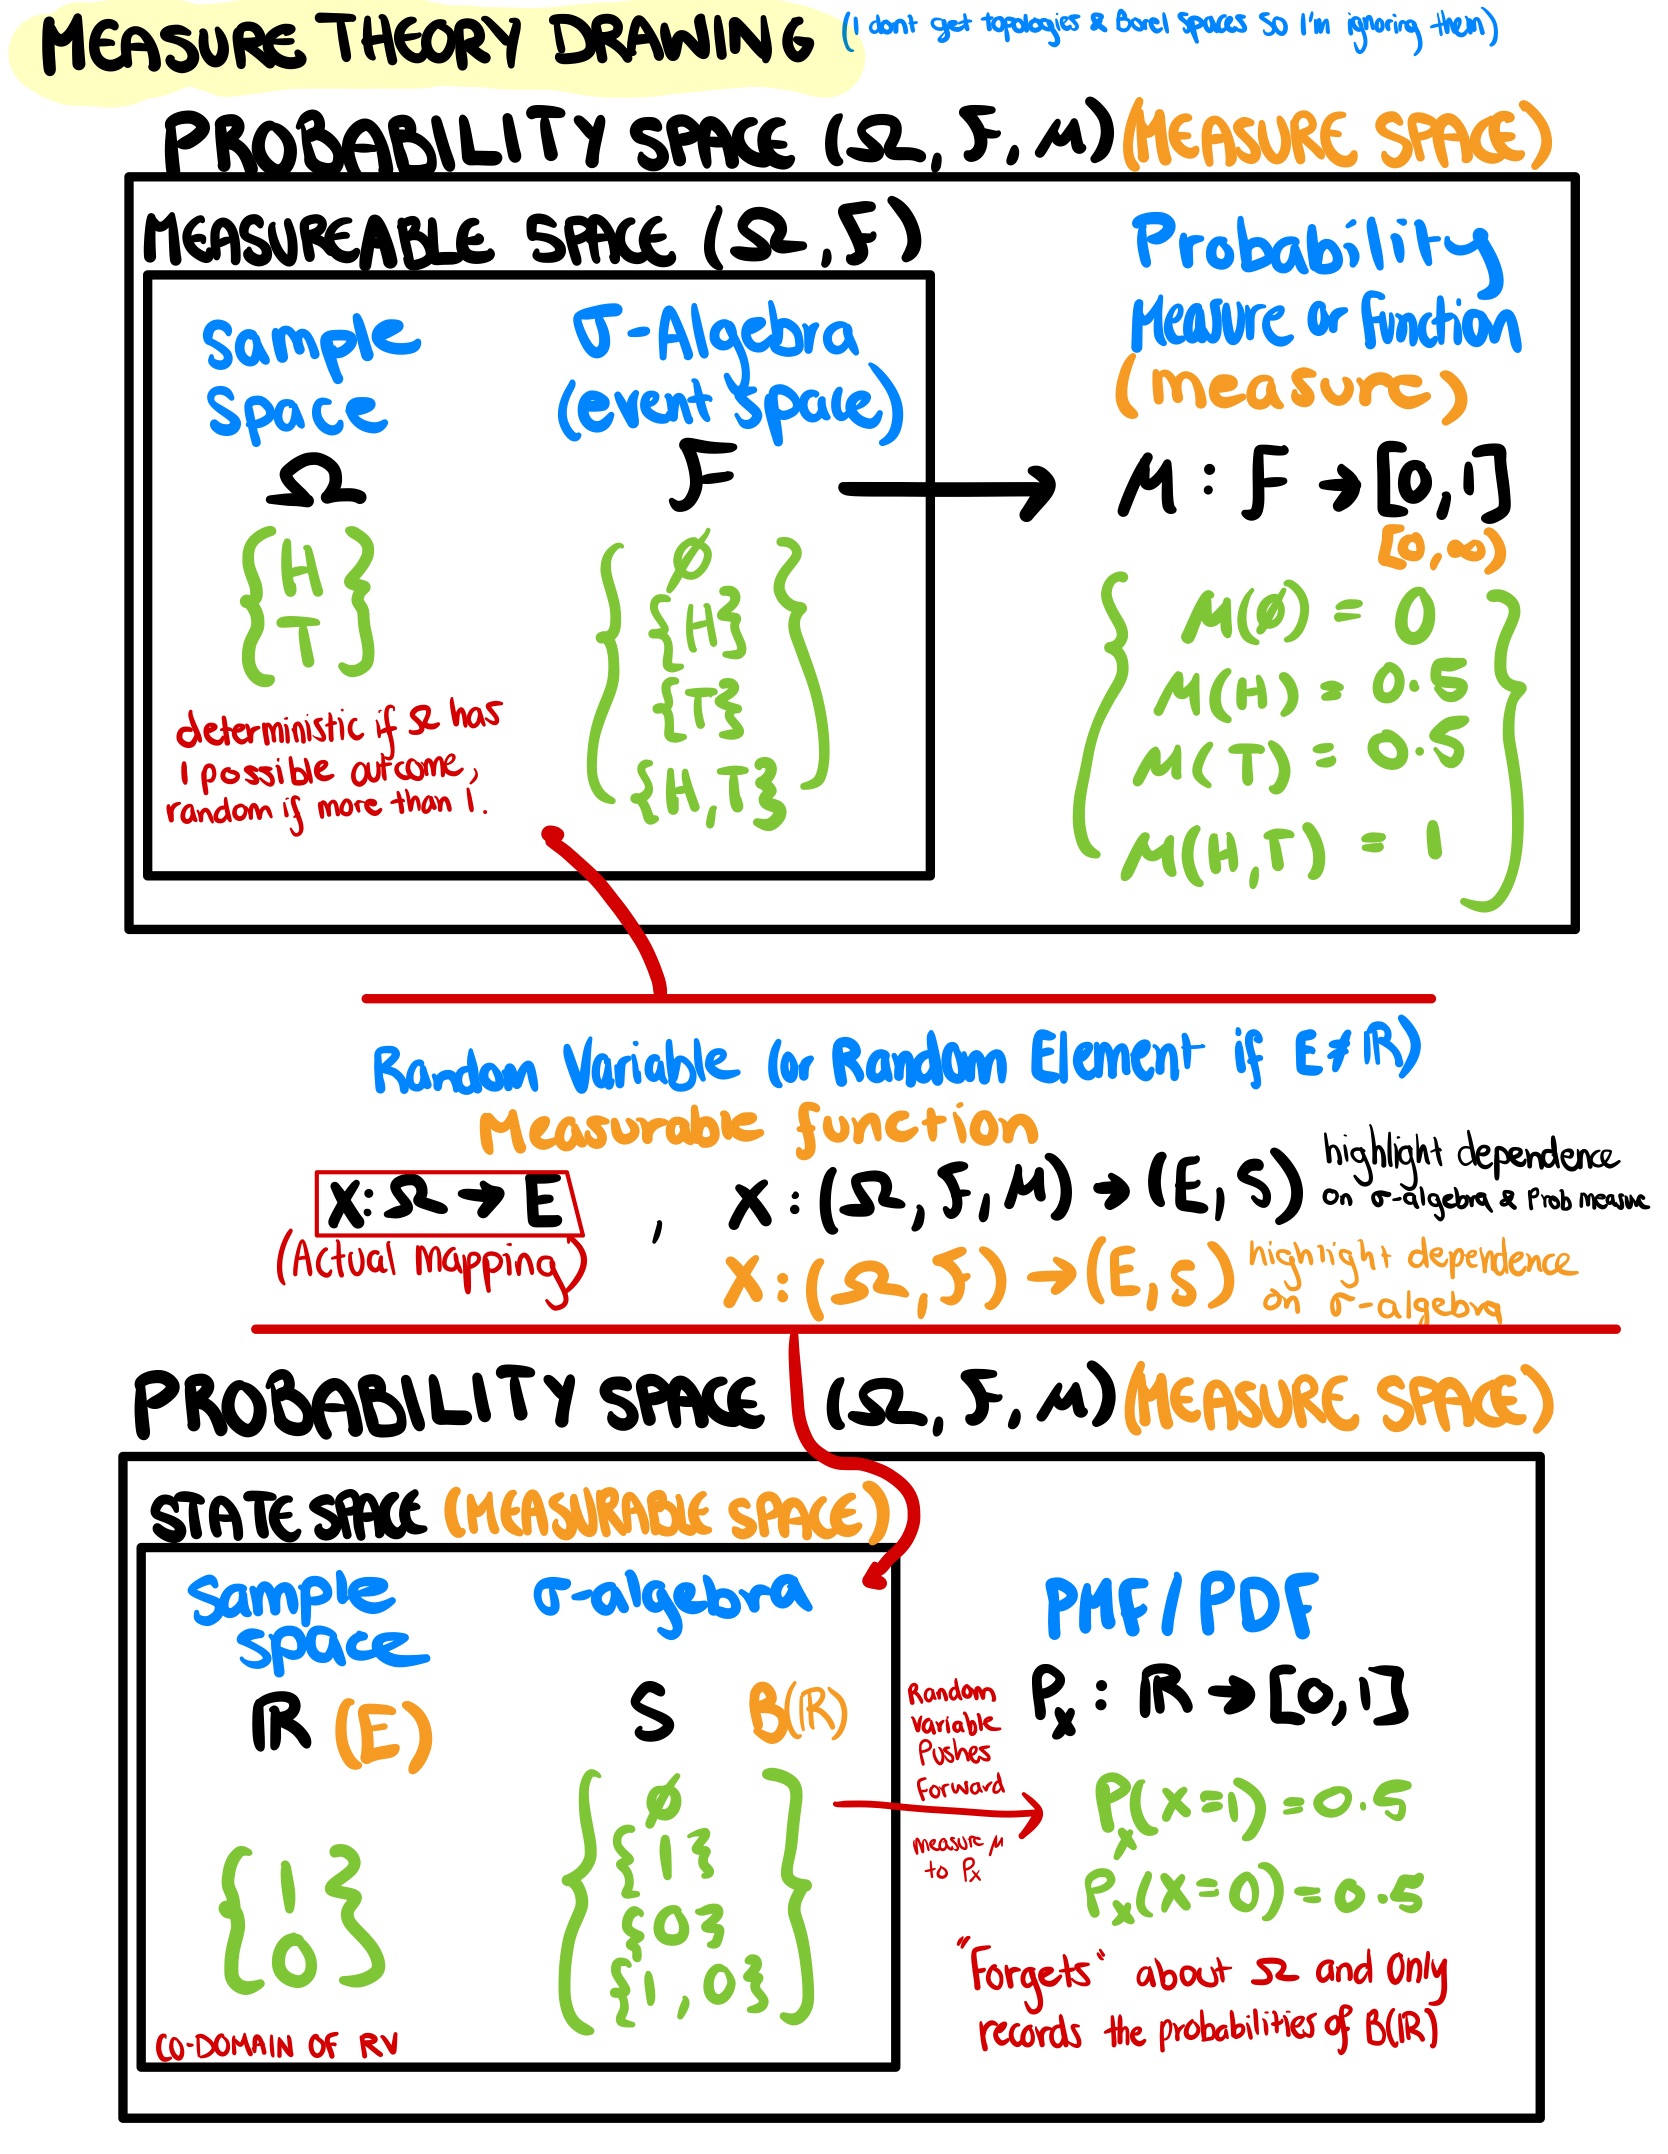 MEASURE THEORY DRAWING (I dont get topologies & Borel spaces so I'm ignoring them)
PROBABILITY SPACE (Ω, F, μ) (MEASURE SPACE)
MEASUREABLE SPACE (Ω, F)
Sample
Space
Ω
{H
T}
deterministic if Ω has
1 possible outcome,
random if more than 1.
σ-Algebra
(event space)
F
{∅
{H}
{T}
{H,T}}
Probability
Measure or function
(measure)
μ : F → [0,1]
[0,∞)
{μ(∅) = 0
μ(H) = 0.5
μ(T) = 0.5
μ(H,T) = 1}
Random Variable (or Random Element if E≠ℝ)
Measurable function
X: Ω → E , X : (Ω, F, μ) → (E, S) highlight dependence
on σ-algebra & Prob measure
(Actual Mapping)
X : (Ω, F) → (E, S) highlight dependence
on σ-algebra
PROBABILITY SPACE (Ω, F, μ) (MEASURE SPACE)
STATE SPACE (MEASURABLE SPACE)
Sample
space
ℝ (E)
{1
0}
CO-DOMAIN OF RV
σ-algebra
S B(ℝ)
{∅
{1}
{0}
{1,0}}
Random
variable
Pushes
Forward
measure μ
to Px
PMF/PDF
Px : ℝ → [0,1]
Px(X=1) = 0.5
Px(X=0) = 0.5
"Forgets" about Ω and only
records the probabilities of B(ℝ)